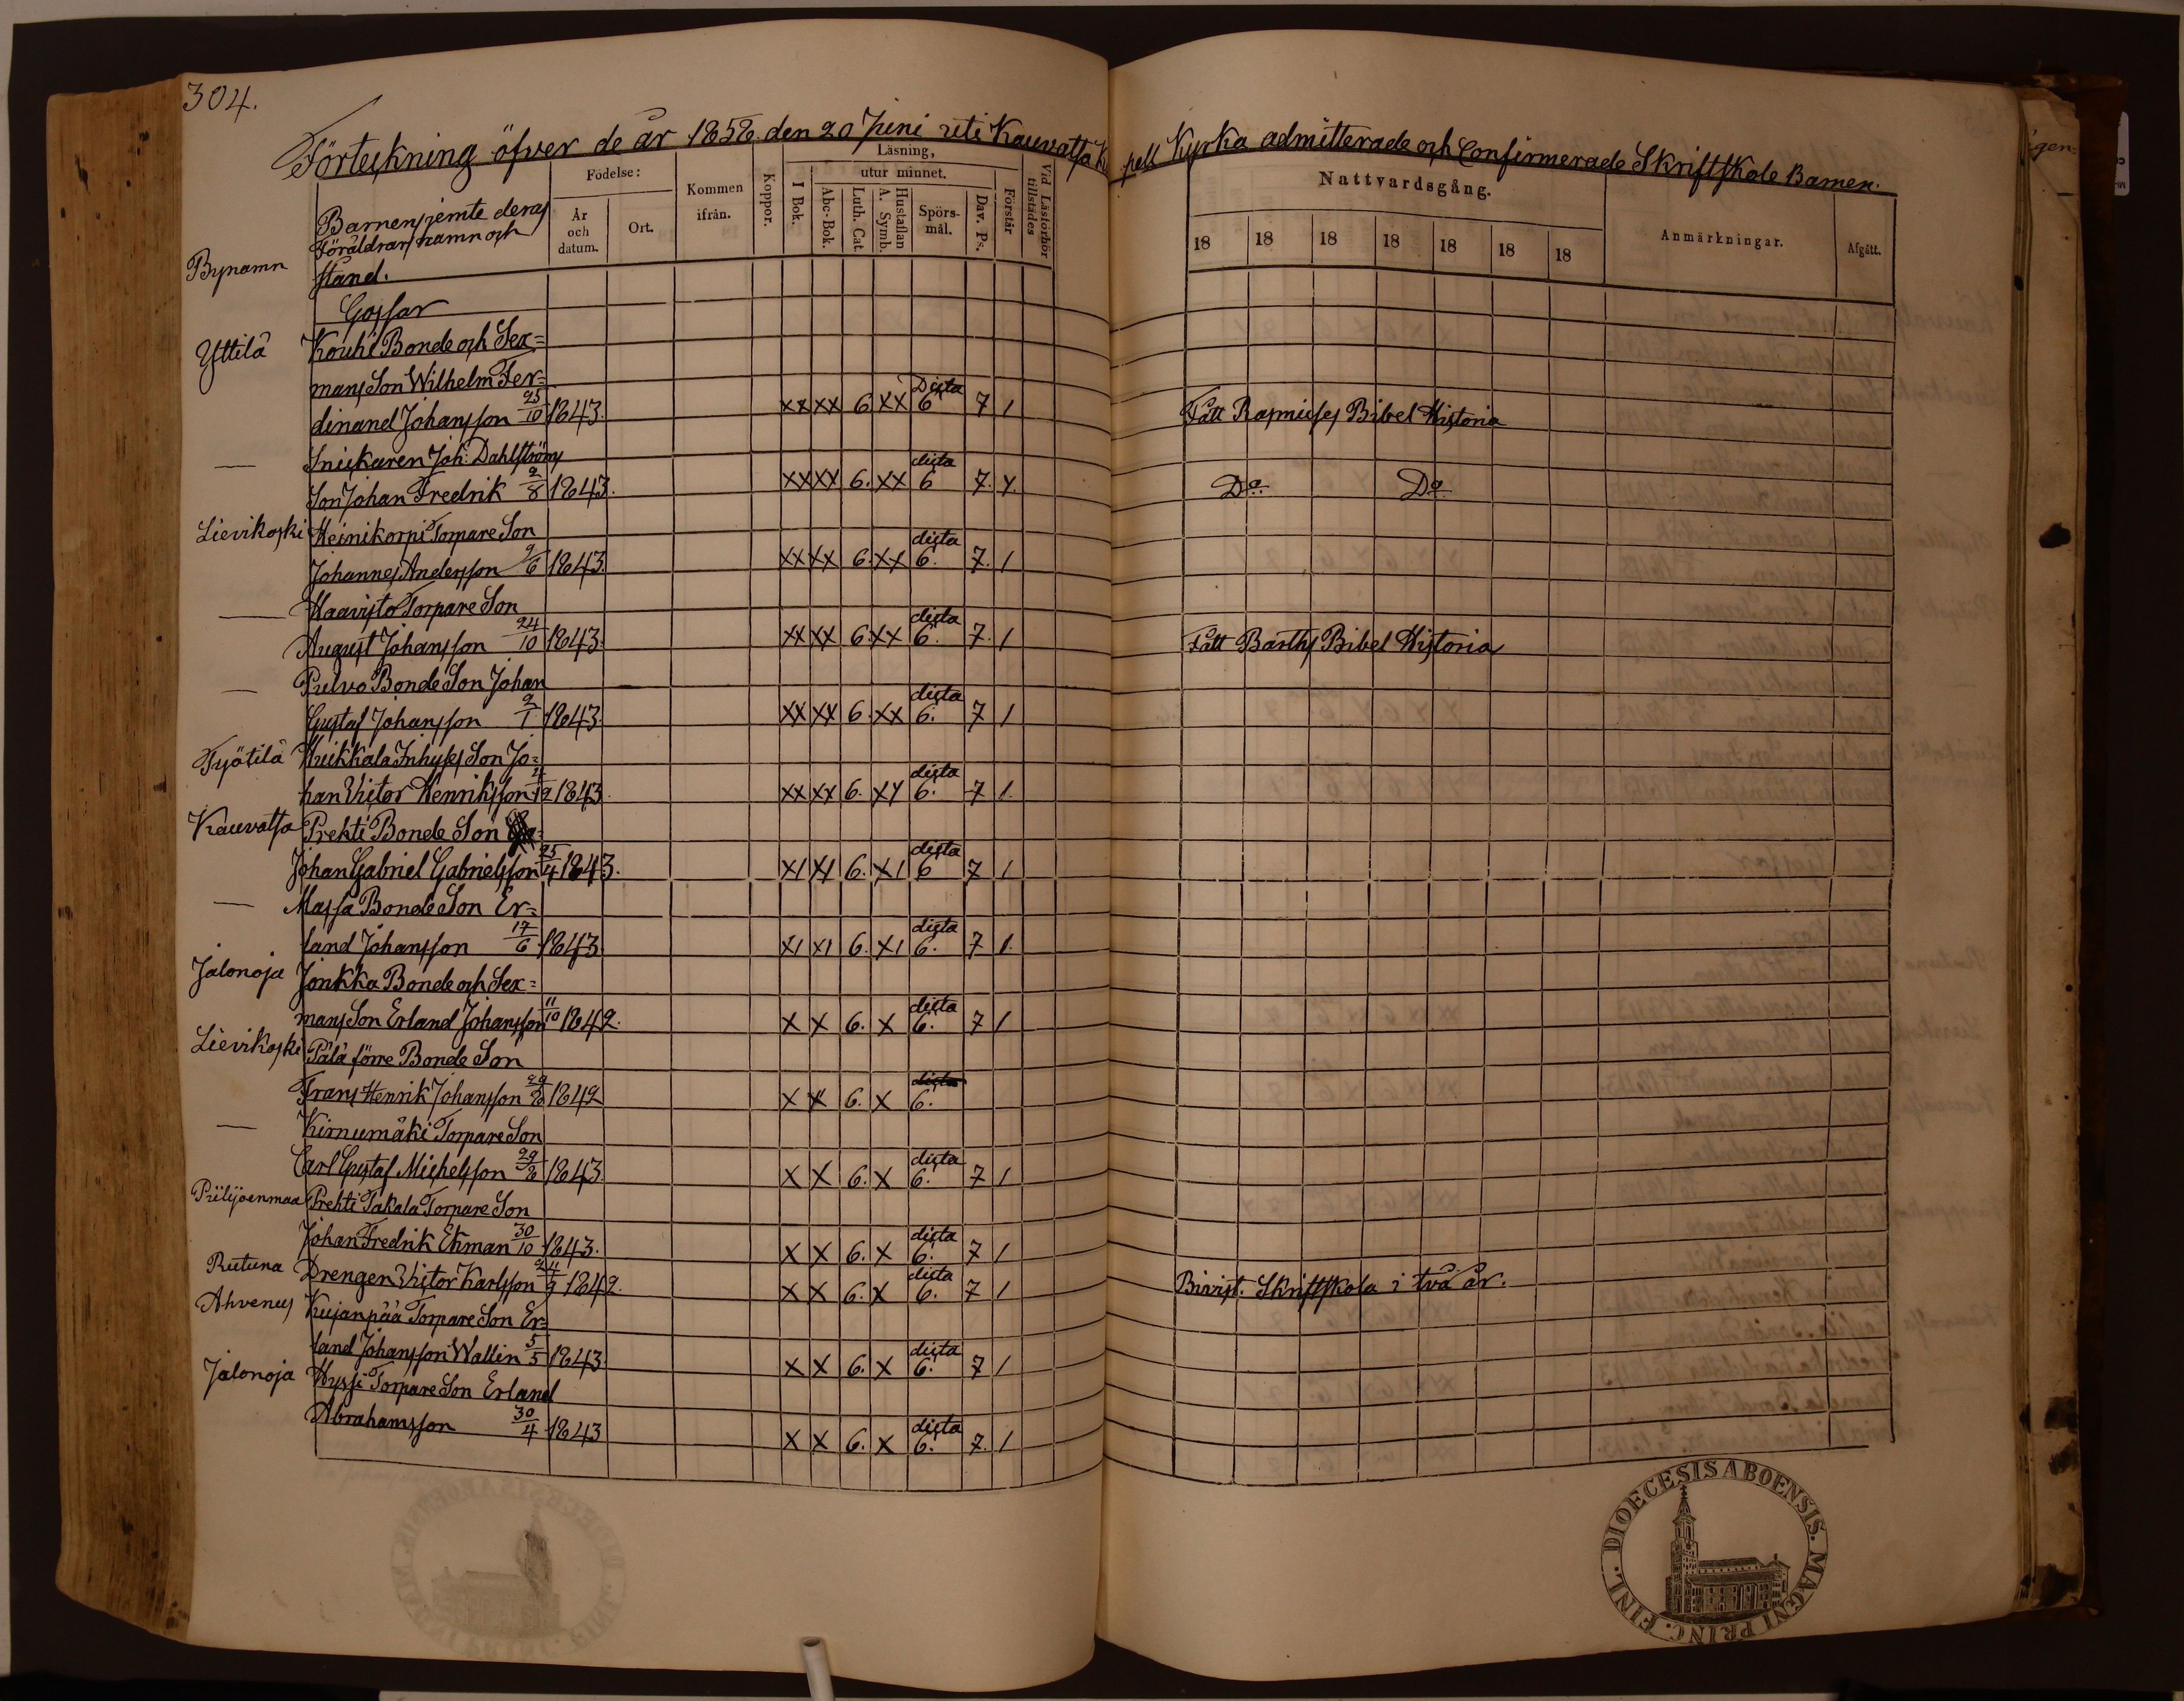 304.
Förteckning öfver de år 1858. den 20 Juni uti Kauvatsa Ka
pell Kyrka admitterade och Confirmerade Skriftskole Barnen.
Bynamn
Barnens jemte deras Föräldrars namn och stånd.
Födelse:
År och datum.
Ort.
Kommen ifrån.
Koppor.
Läsning,
I Bok.
utur minnet.
Abc-Bok.
Luth. Cat.
Hustaflan A. Symb.
Spörs-mål.
Dav. Ps.
Förstår
Vid Läsförhör tillstädes
Nattvardsgång.
18 18 18 18 18 18 18
Anmärkningar.
Afgått.
Gossar
Yttilä Kouhi Bonde och Sex=
mans Son Wilhelm Fer= Dicta
dinand Johansson 25/10 1843. XX XX 6 XX 6 7 1 Fått Rasmuses Bibel Historia
— Snickaren Joh: Dahlströms dicta
Son Johan Fredrik 2/8 1843. XX XX 6. XX 6 7. Y. Do. Do.
Lievikoski Heinikorpi Torpare Son dicta
Johannes Andersson 9/6 1843. XX XX 6. XX 6. 7. 1
— Haavisto Torpare Son dicta
August Johansson 24/10 1843. XX XX 6. XX 6. 7. 1 Fått Barths Bibel Historia
— Pulvo Bonde Son Johan dicta
Gustaf Johansson 2/1 1843. XX XX 6. XX 6. 7 1
Työtilä Huikkala Inhyses Son Jo= dicta
han Victor Henriksson 1843. XX XX 6. XY 6. 7 1.
Kauvatsa Prehti Bonde Son dicta
Johan Gabriel Gabrielsson 25/4 1843. X1 X1 6. X1 6 7 1
— Massa Bonde Son Er= dicta
land Johansson 17/6 1843. X1 X1 6. X1 6. 7 1.
Jalonoja Jonkka Bonde och Sex= dicta
mans Son Erland Johansson 11/10 1842. X X 6. X 6. 7 1
Lievikoski Pälä förre Bonde Son dicta
Frans Henrik Johansson 1842 X X 6. X 6.
— Kirnumäki Torpare Son dicta
Carl Gustaf Michelsson 1843. X X 6. X 6. 7 1
Piilijoenmaa Prehti Takala Torpare Son dicta
Johan Fredrik Ekman 30/10 1843. X X 6. X 6. 7 1
Rutuna Drengen Victor Karlsson 1842. X X 6. X dicta 6. 7 1 Bivist. Skriftskola i två år.
Ahvenus Kujanpää Torpare Son Er= dicta
land Johansson Wallin 5/5 1843. X X 6. X 6. 7 1
Jalonoja Hyssi Torpare Son Erland dicta
Abrahamsson 30/4 1843 X X 6. X 6. 7. 1
DIOECESIS ABOENSIS. MAGNI PRINC. FINL.